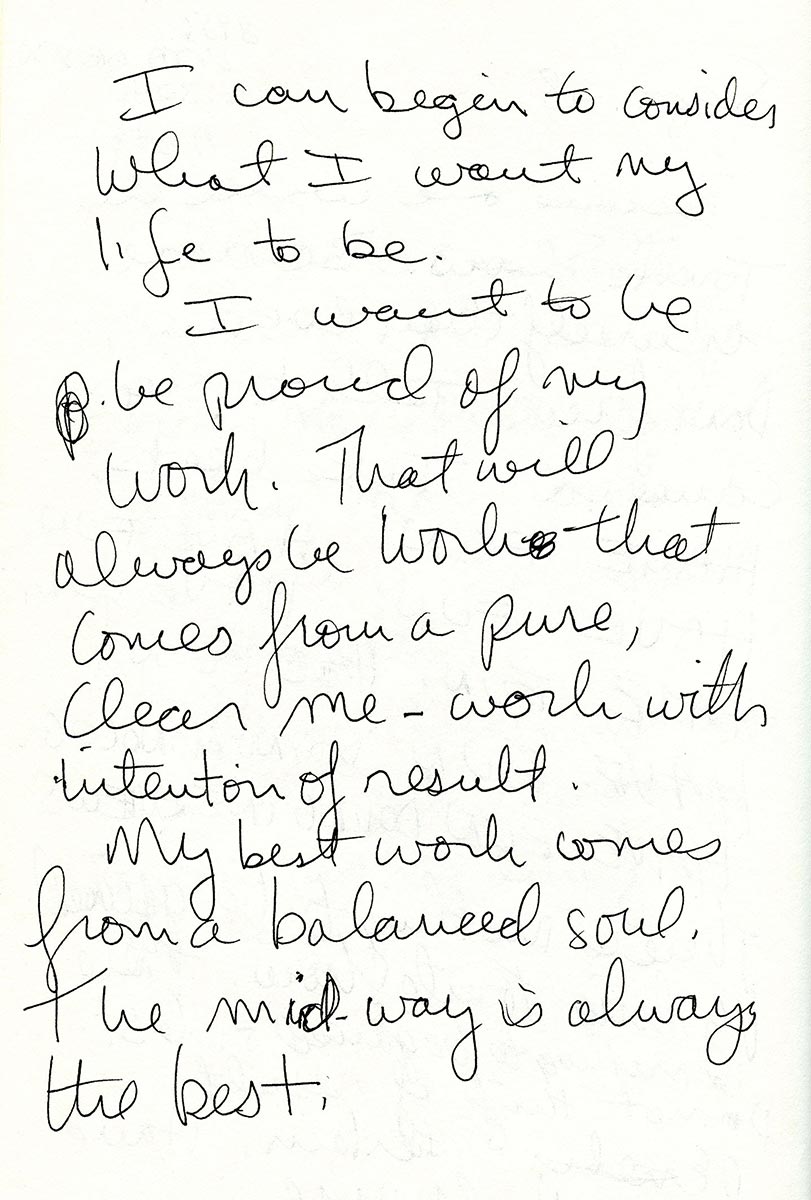 I can begin to consider
What I want my
life to be.
I want to be
be proud of my
work. That will
always be work that
comes from a pure,
clear me - work with
intention of result.
My best work comes
from a balanced soul.
The mid-way is always
the best.